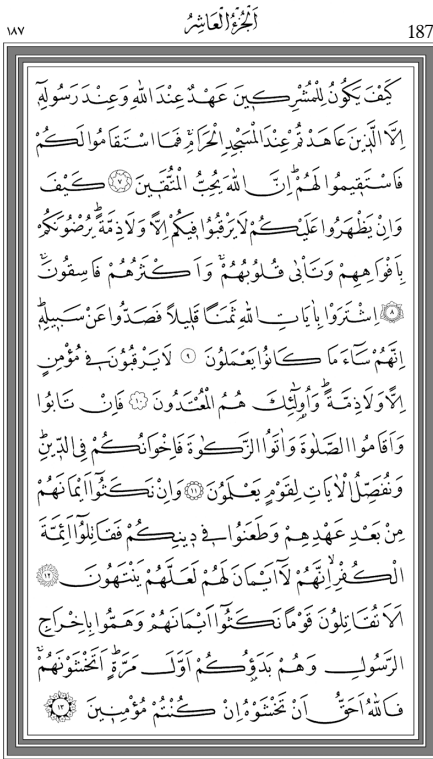 ١٨٧ اَلْجُزْءُ الْعَاشِرُ 187
كَيْفَ يَكُونُ لِلْمُشْرِكِينَ عَهْدٌ عِنْدَ اللّٰهِ وَعِنْدَ رَسُولِهٖٓ
اِلَّا الَّذِينَ عَاهَدْتُمْ عِنْدَ الْمَسْجِدِ الْحَرَامِۚ فَمَا اسْتَقَامُوا لَكُمْ
فَاسْتَقِيمُوا لَهُمْۜ اِنَّ اللّٰهَ يُحِبُّ الْمُتَّقِينَ ﴿٧﴾ كَيْفَ
وَاِنْ يَظْهَرُوا عَلَيْكُمْ لَا يَرْقُبُوا فِيكُمْ اِلًّا وَلَا ذِمَّةًۜ يُرْضُونَكُمْ
بِاَفْوَاهِهِمْ وَتَأْبٰى قُلُوبُهُمْۚ وَاَكْثَرُهُمْ فَاسِقُونَۚ
﴿٨﴾ اِشْتَرَوْا بِاٰيَاتِ اللّٰهِ ثَمَنًا قَلِيلًا فَصَدُّوا عَنْ سَبِيلِهٖۜ
اِنَّهُمْ سَٓاءَ مَا كَانُوا يَعْمَلُونَ ﴿٩﴾ لَا يَرْقُبُونَ فِي مُؤْمِنٍ
اِلًّا وَلَا ذِمَّةًۜ وَاُو۬لٰٓئِكَ هُمُ الْمُعْتَدُونَ ﴿١٠﴾ فَاِنْ تَابُوا
وَاَقَامُوا الصَّلٰوةَ وَاٰتَوُا الزَّكٰوةَ فَاِخْوَانُكُمْ فِي الدِّينِۜ
وَنُفَصِّلُ الْاٰيَاتِ لِقَوْمٍ يَعْلَمُونَ ﴿١١﴾ وَاِنْ نَكَثُٓوا اَيْمَانَهُمْ
مِنْ بَعْدِ عَهْدِهِمْ وَطَعَنُوا فِي دِينِكُمْ فَقَاتِلُٓوا اَئِمَّةَ
الْكُفْرِۙ اِنَّهُمْ لَٓا اَيْمَانَ لَهُمْ لَعَلَّهُمْ يَنْتَهُونَ ﴿١٢﴾
اَلَا تُقَاتِلُونَ قَوْمًا نَكَثُٓوا اَيْمَانَهُمْ وَهَمُّوا بِاِخْرَاجِ
الرَّسُولِ وَهُمْ بَدَؤُ۫كُمْ اَوَّلَ مَرَّةٍۜ اَتَخْشَوْنَهُمْۚ
فَاللّٰهُ اَحَقُّ اَنْ تَخْشَوْهُ اِنْ كُنْتُمْ مُؤْمِنِينَ ﴿١٣﴾